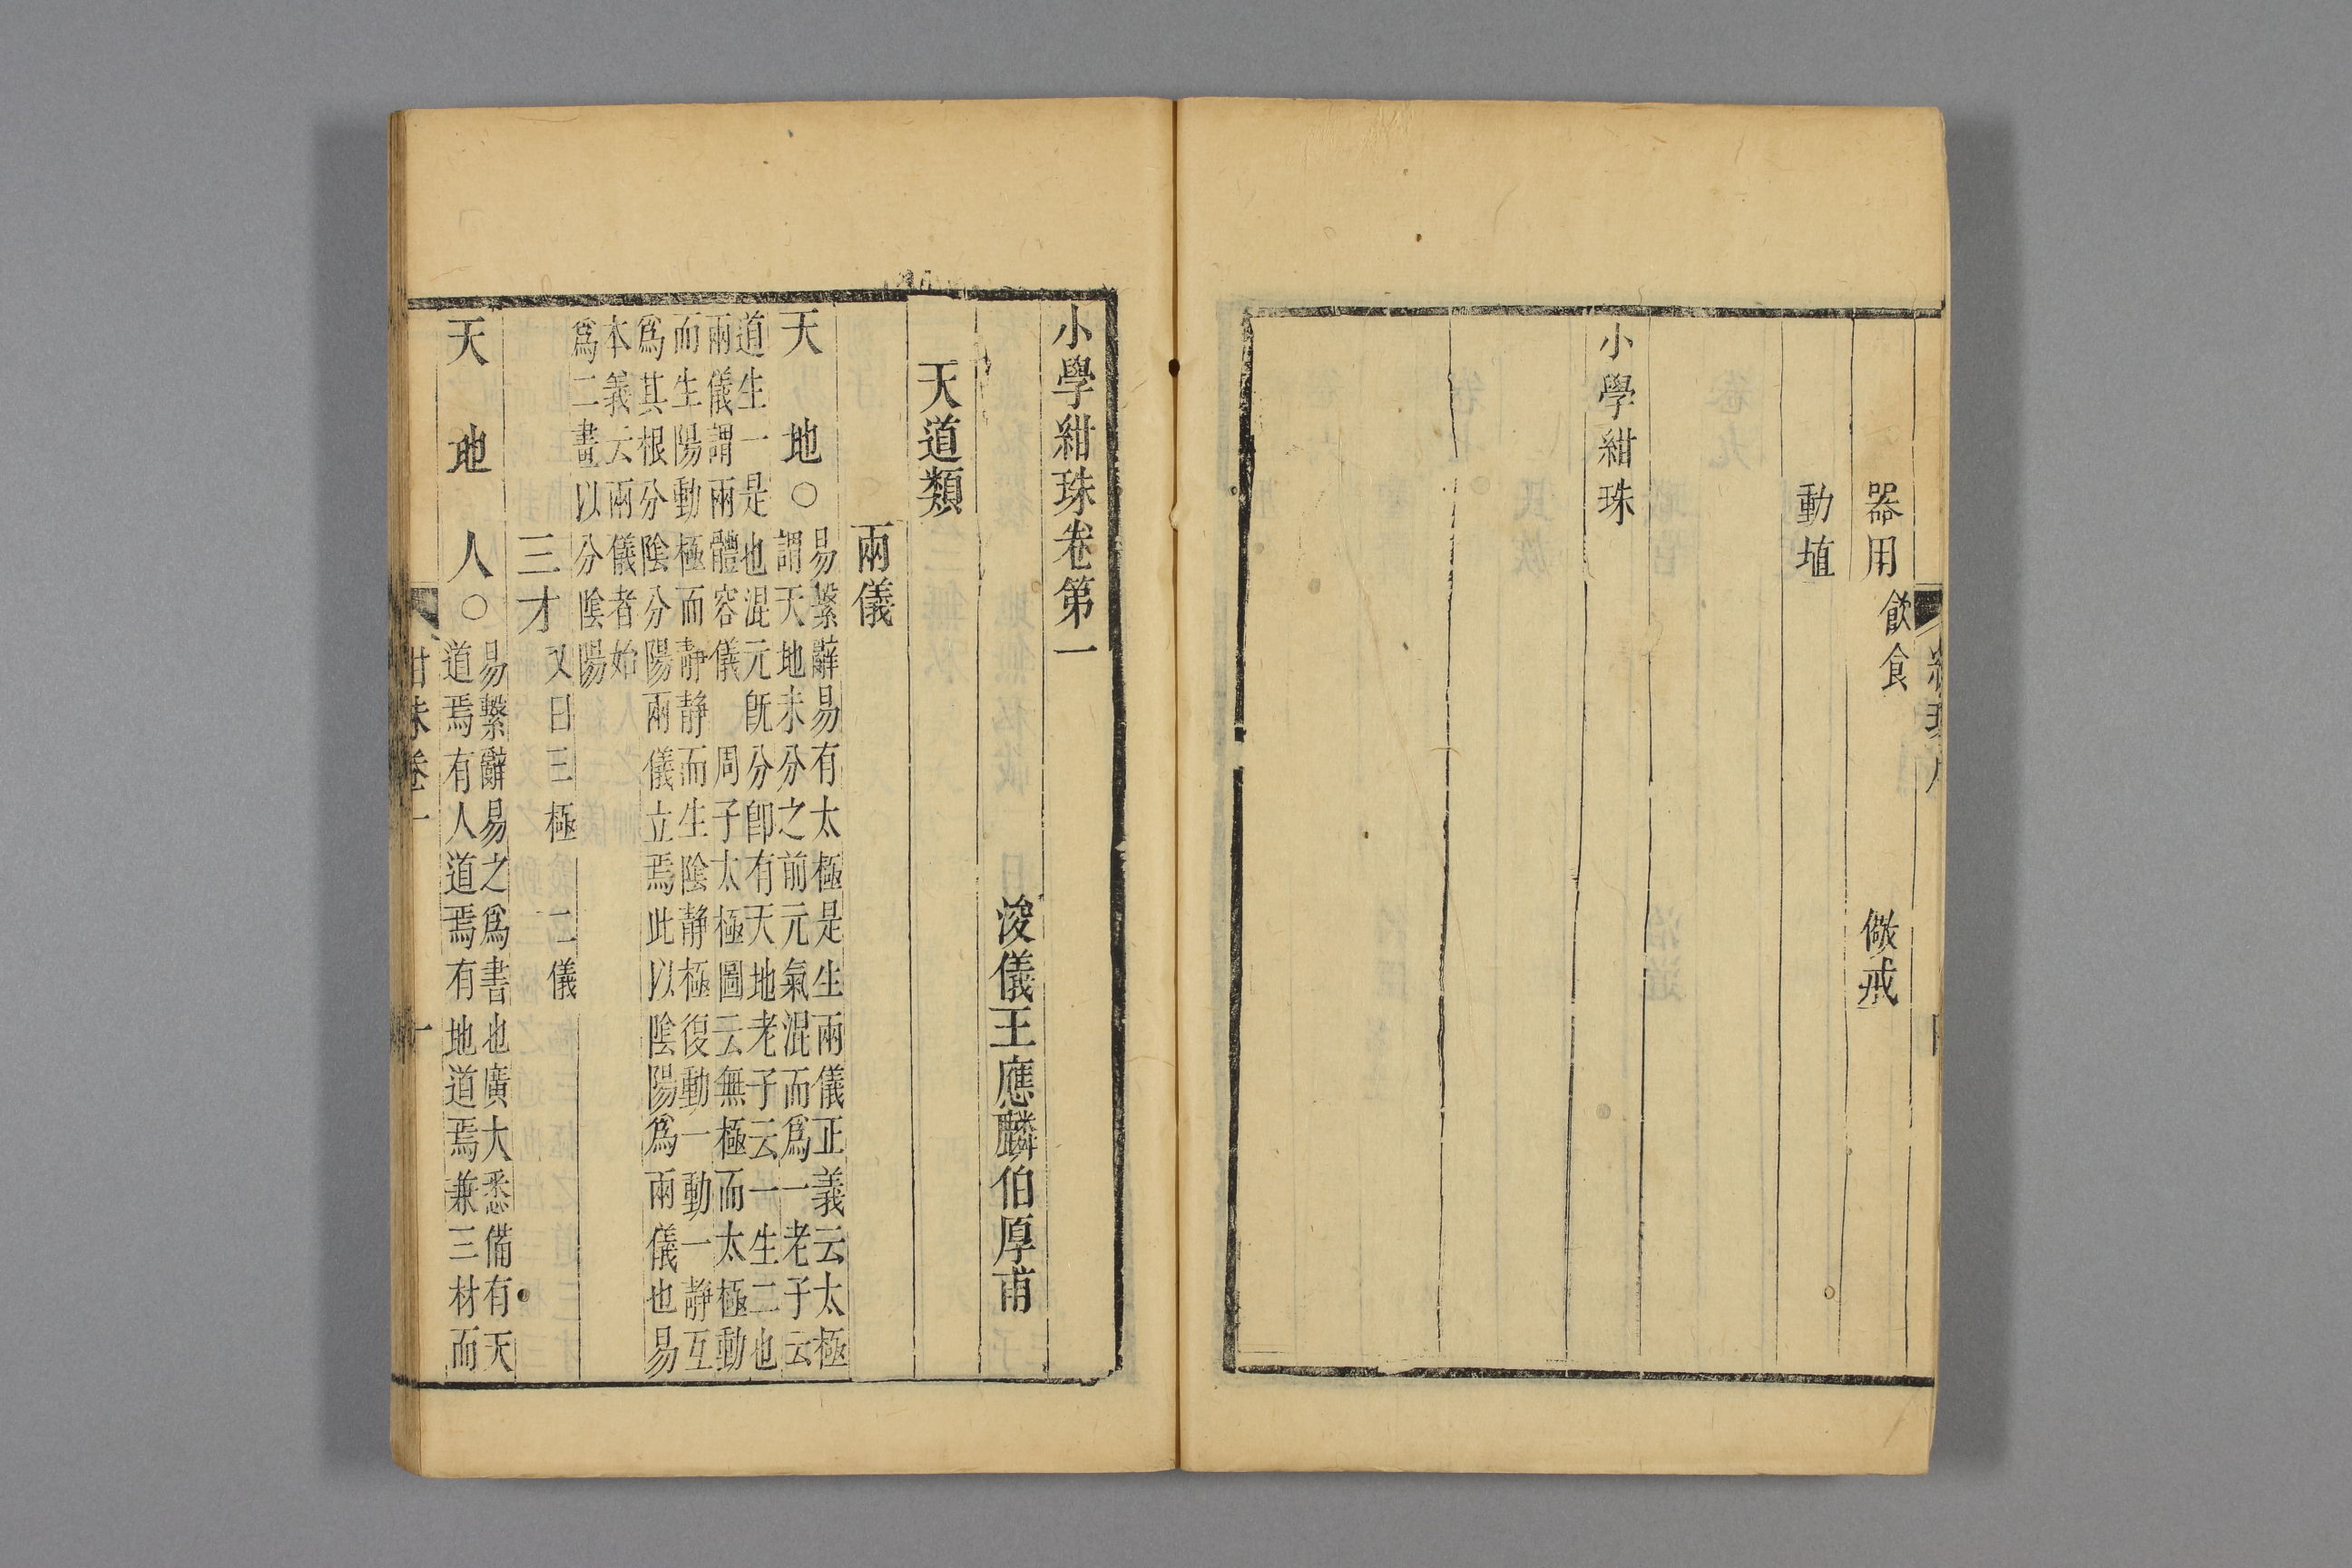 器用 飲食 儆戒
動埴
小學紺珠
小學紺珠卷第一
浚儀王應麟伯厚甫
天道類
兩儀
天地○易繫辭易有太極是生兩儀正義云太極
謂天地未分之前元氣混而爲一老子云
道生一是也混元旣分卽有天地老子云一生二也
兩儀謂兩體容儀 周子太極圖云無極而太極動
而生陽動極而靜靜而生陰靜極復動一動一靜互
爲其根分陰分陽兩儀立焉此以陰陽爲兩儀也易
本義云兩儀者始
爲二畫以分陰陽
三才 又曰三極 二儀
天地人○易繫辭易之爲書也廣大悉備有天
道焉有人道焉有地道焉兼三材而